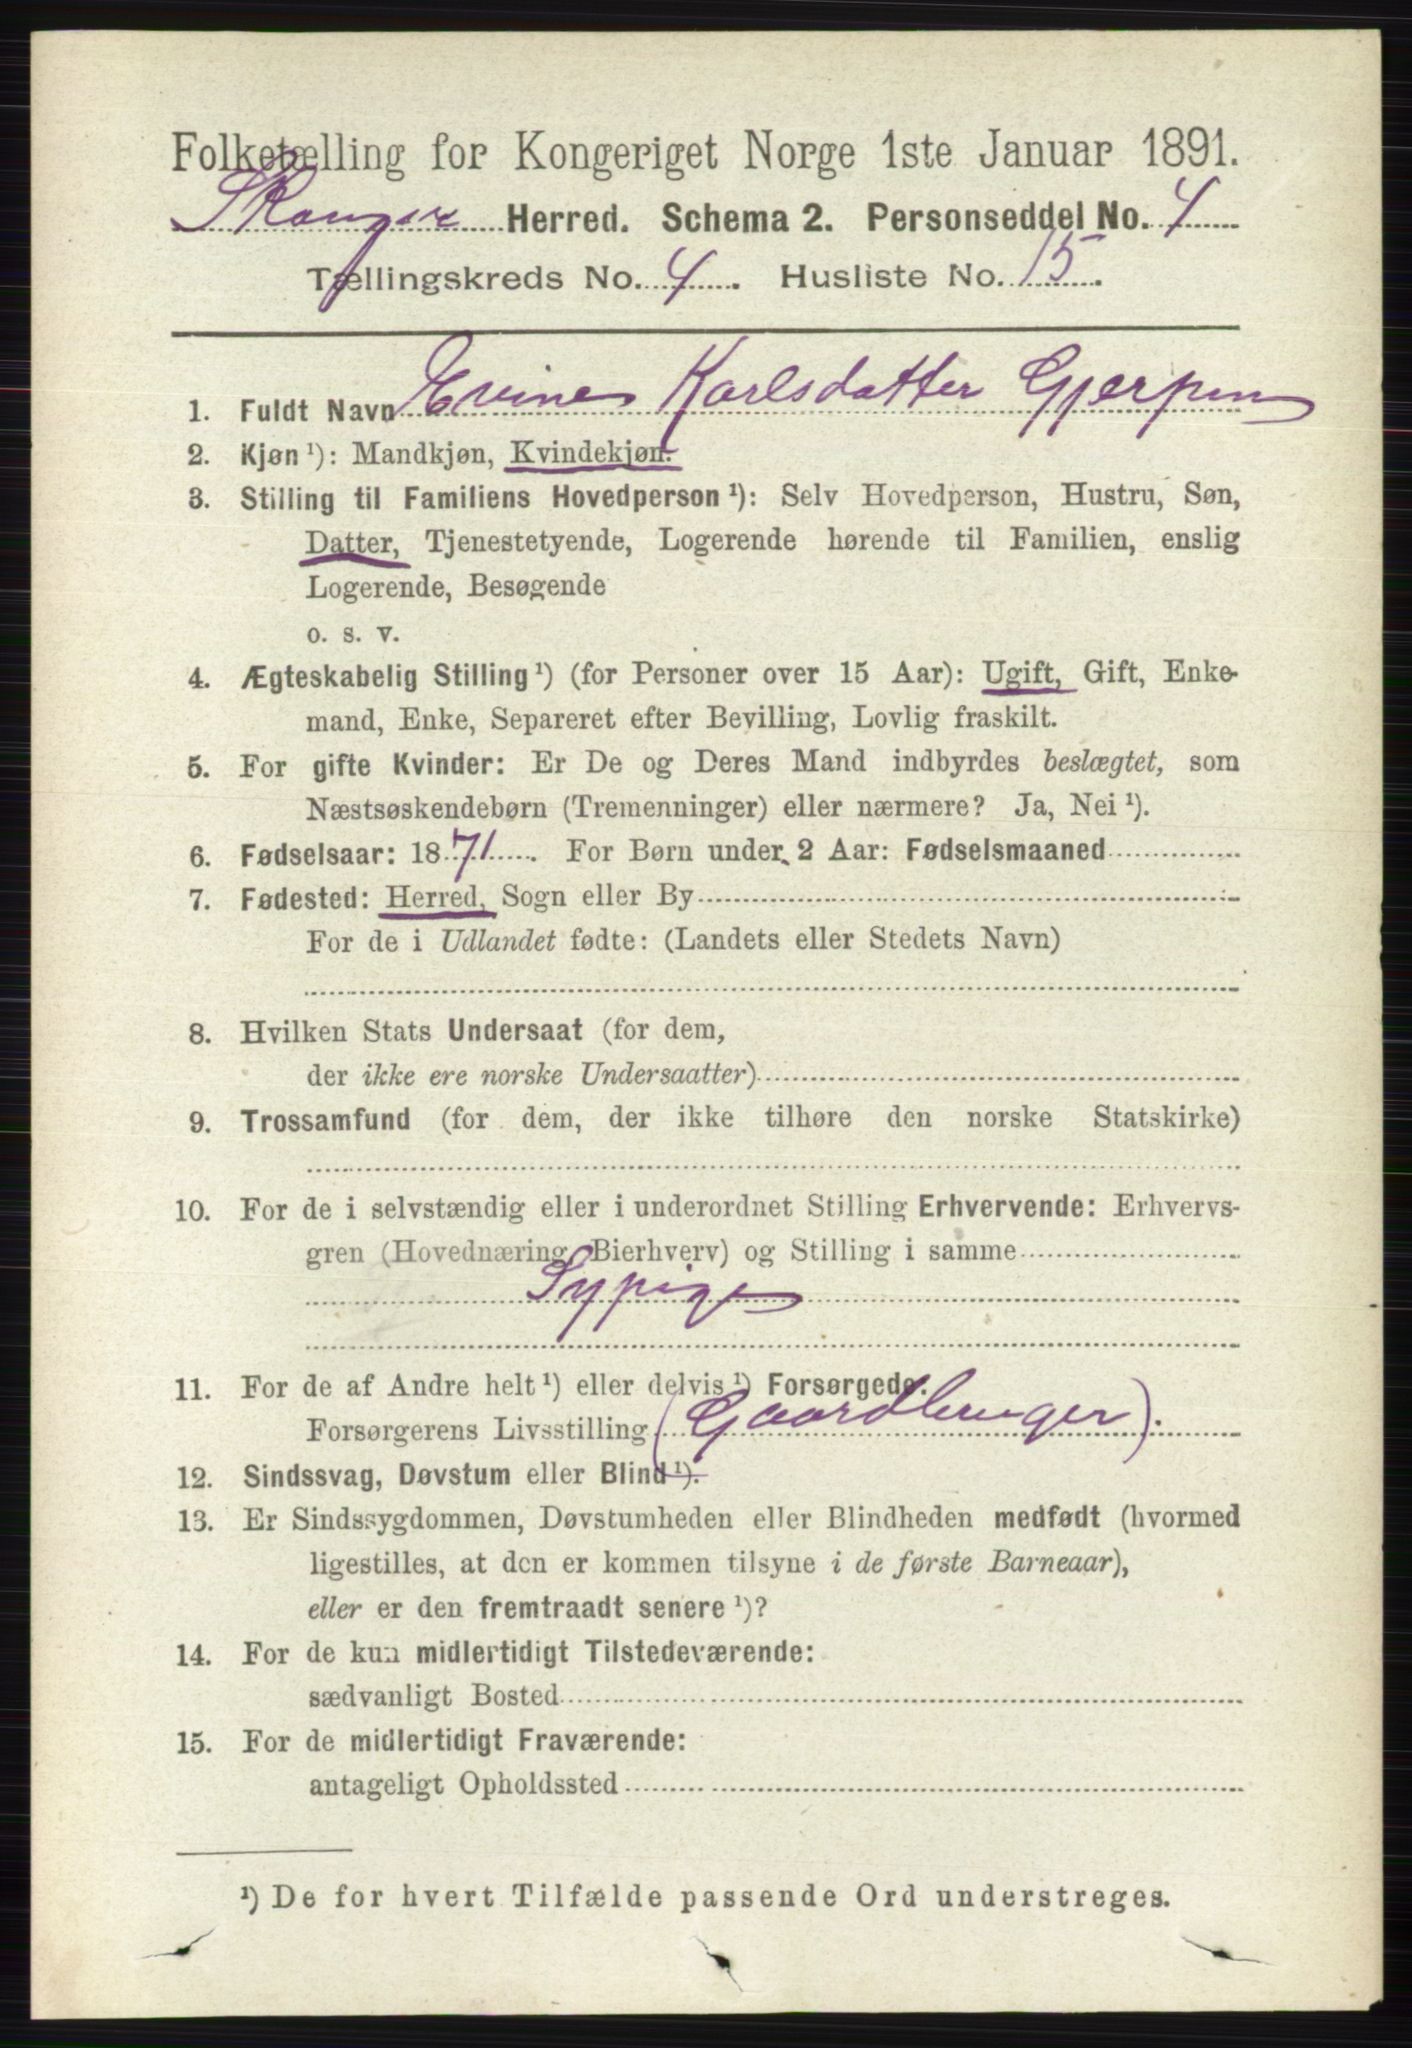 Folketælling for Kongeriget Norge 1ste Januar 1891.
Skouger Herred. Schema 2. Personseddel No. 4
Tællingskreds No. 4. Husliste No. 15.
1. Fuldt Navn Evine Karlsdatter Gjerpen
2. Kjøn ¹): Mandkjøn, Kvindekjøn.
3. Stilling til Familiens Hovedperson ¹): Selv Hovedperson, Hustru, Søn,
Datter, Tjenestetyende, Logerende hørende til Familien, enslig
Logerende, Besøgende
o. s. v.
4. Ægteskabelig Stilling ¹) (for Personer over 15 Aar): Ugift, Gift, Enke-
mand, Enke, Separeret efter Bevilling, Lovlig fraskilt.
5. For gifte Kvinder: Er De og Deres Mand indbyrdes beslægtet, som
Næstsøskendebørn (Tremenninger) eller nærmere? Ja, Nei ¹).
6. Fødselsaar: 1871. For Børn under 2 Aar: Fødselsmaaned
7. Fødested: Herred, Sogn eller By
For de i Udlandet fødte: (Landets eller Stedets Navn)
8. Hvilken Stats Undersaat (for dem,
der ikke ere norske Undersaatter)
9. Trossamfund (for dem, der ikke tilhøre den norske Statskirke)
10. For de i selvstændig eller i underordnet Stilling Erhvervende: Erhvervs-
gren (Hovednæring, Bierhverv) og Stilling i samme
Sypige
11. For de af Andre helt ¹) eller delvis ¹) Forsørgede.
Forsørgerens Livsstilling (Gaardbruger).
12. Sindssvag, Døvstum eller Blind ¹).
13. Er Sindssygdommen, Døvstumheden eller Blindheden medfødt (hvormed
ligestilles, at den er kommen tilsyne i de første Barneaar),
eller er den fremtraadt senere ¹)?
14. For de kun midlertidigt Tilstedeværende:
sædvanligt Bosted
15. For de midlertidigt Fraværende:
antageligt Opholdssted
¹) De for hvert Tilfælde passende Ord understreges.